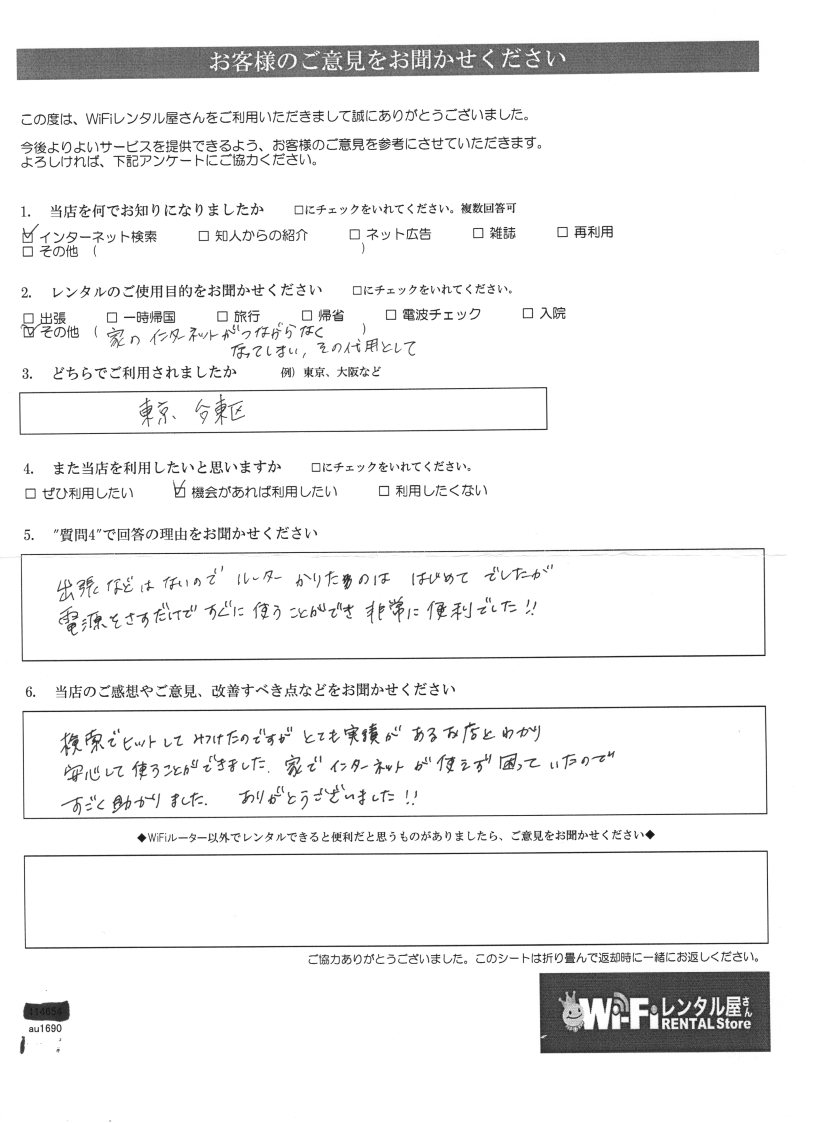 お客様のご意見をお聞かせください
この度は、WiFiレンタル屋さんをご利用いただきまして誠にありがとうございました。
今後よりよいサービスを提供できるよう、お客様のご意見を参考にさせていただきます。
よろしければ、下記アンケートにご協力ください。
1. 当店を何でお知りになりましたか □にチェックをいれてください。複数回答可
☑ インターネット検索 □ 知人からの紹介 □ ネット広告 □ 雑誌 □ 再利用
□ その他 ( )
2. レンタルのご使用目的をお聞かせください □にチェックをいれてください。
□ 出張 □ 一時帰国 □ 旅行 □ 帰省 □ 電波チェック □ 入院
☑ その他 ( 家のインターネットがつながらなく )
なってしまい, その代用として
3. どちらでご利用されましたか 例) 東京、大阪など
東京、台東区
4. また当店を利用したいと思いますか □にチェックをいれてください。
□ ぜひ利用したい ☑ 機会があれば利用したい □ 利用したくない
5. "質問4"で回答の理由をお聞かせください
出張などはないので ルーターかりたものは はじめて でしたが
電源をさすだけで すぐに 使うことができ 非常に便利でした!!
6. 当店のご感想やご意見、改善すべき点などをお聞かせください
検索でヒットして みつけたのですが とても実績が あるお店とわかり
安心して使うことができました. 家で インターネットが使えず 困っていたので
すごく助かりました. ありがとうございました!!
◆WiFiルーター以外でレンタルできると便利だと思うものがありましたら、ご意見をお聞かせください◆
ご協力ありがとうございました。このシートは折り畳んで返却時に一緒にお返しください。
114654
au1690
Wi-Fi レンタル屋さん
RENTAL Store